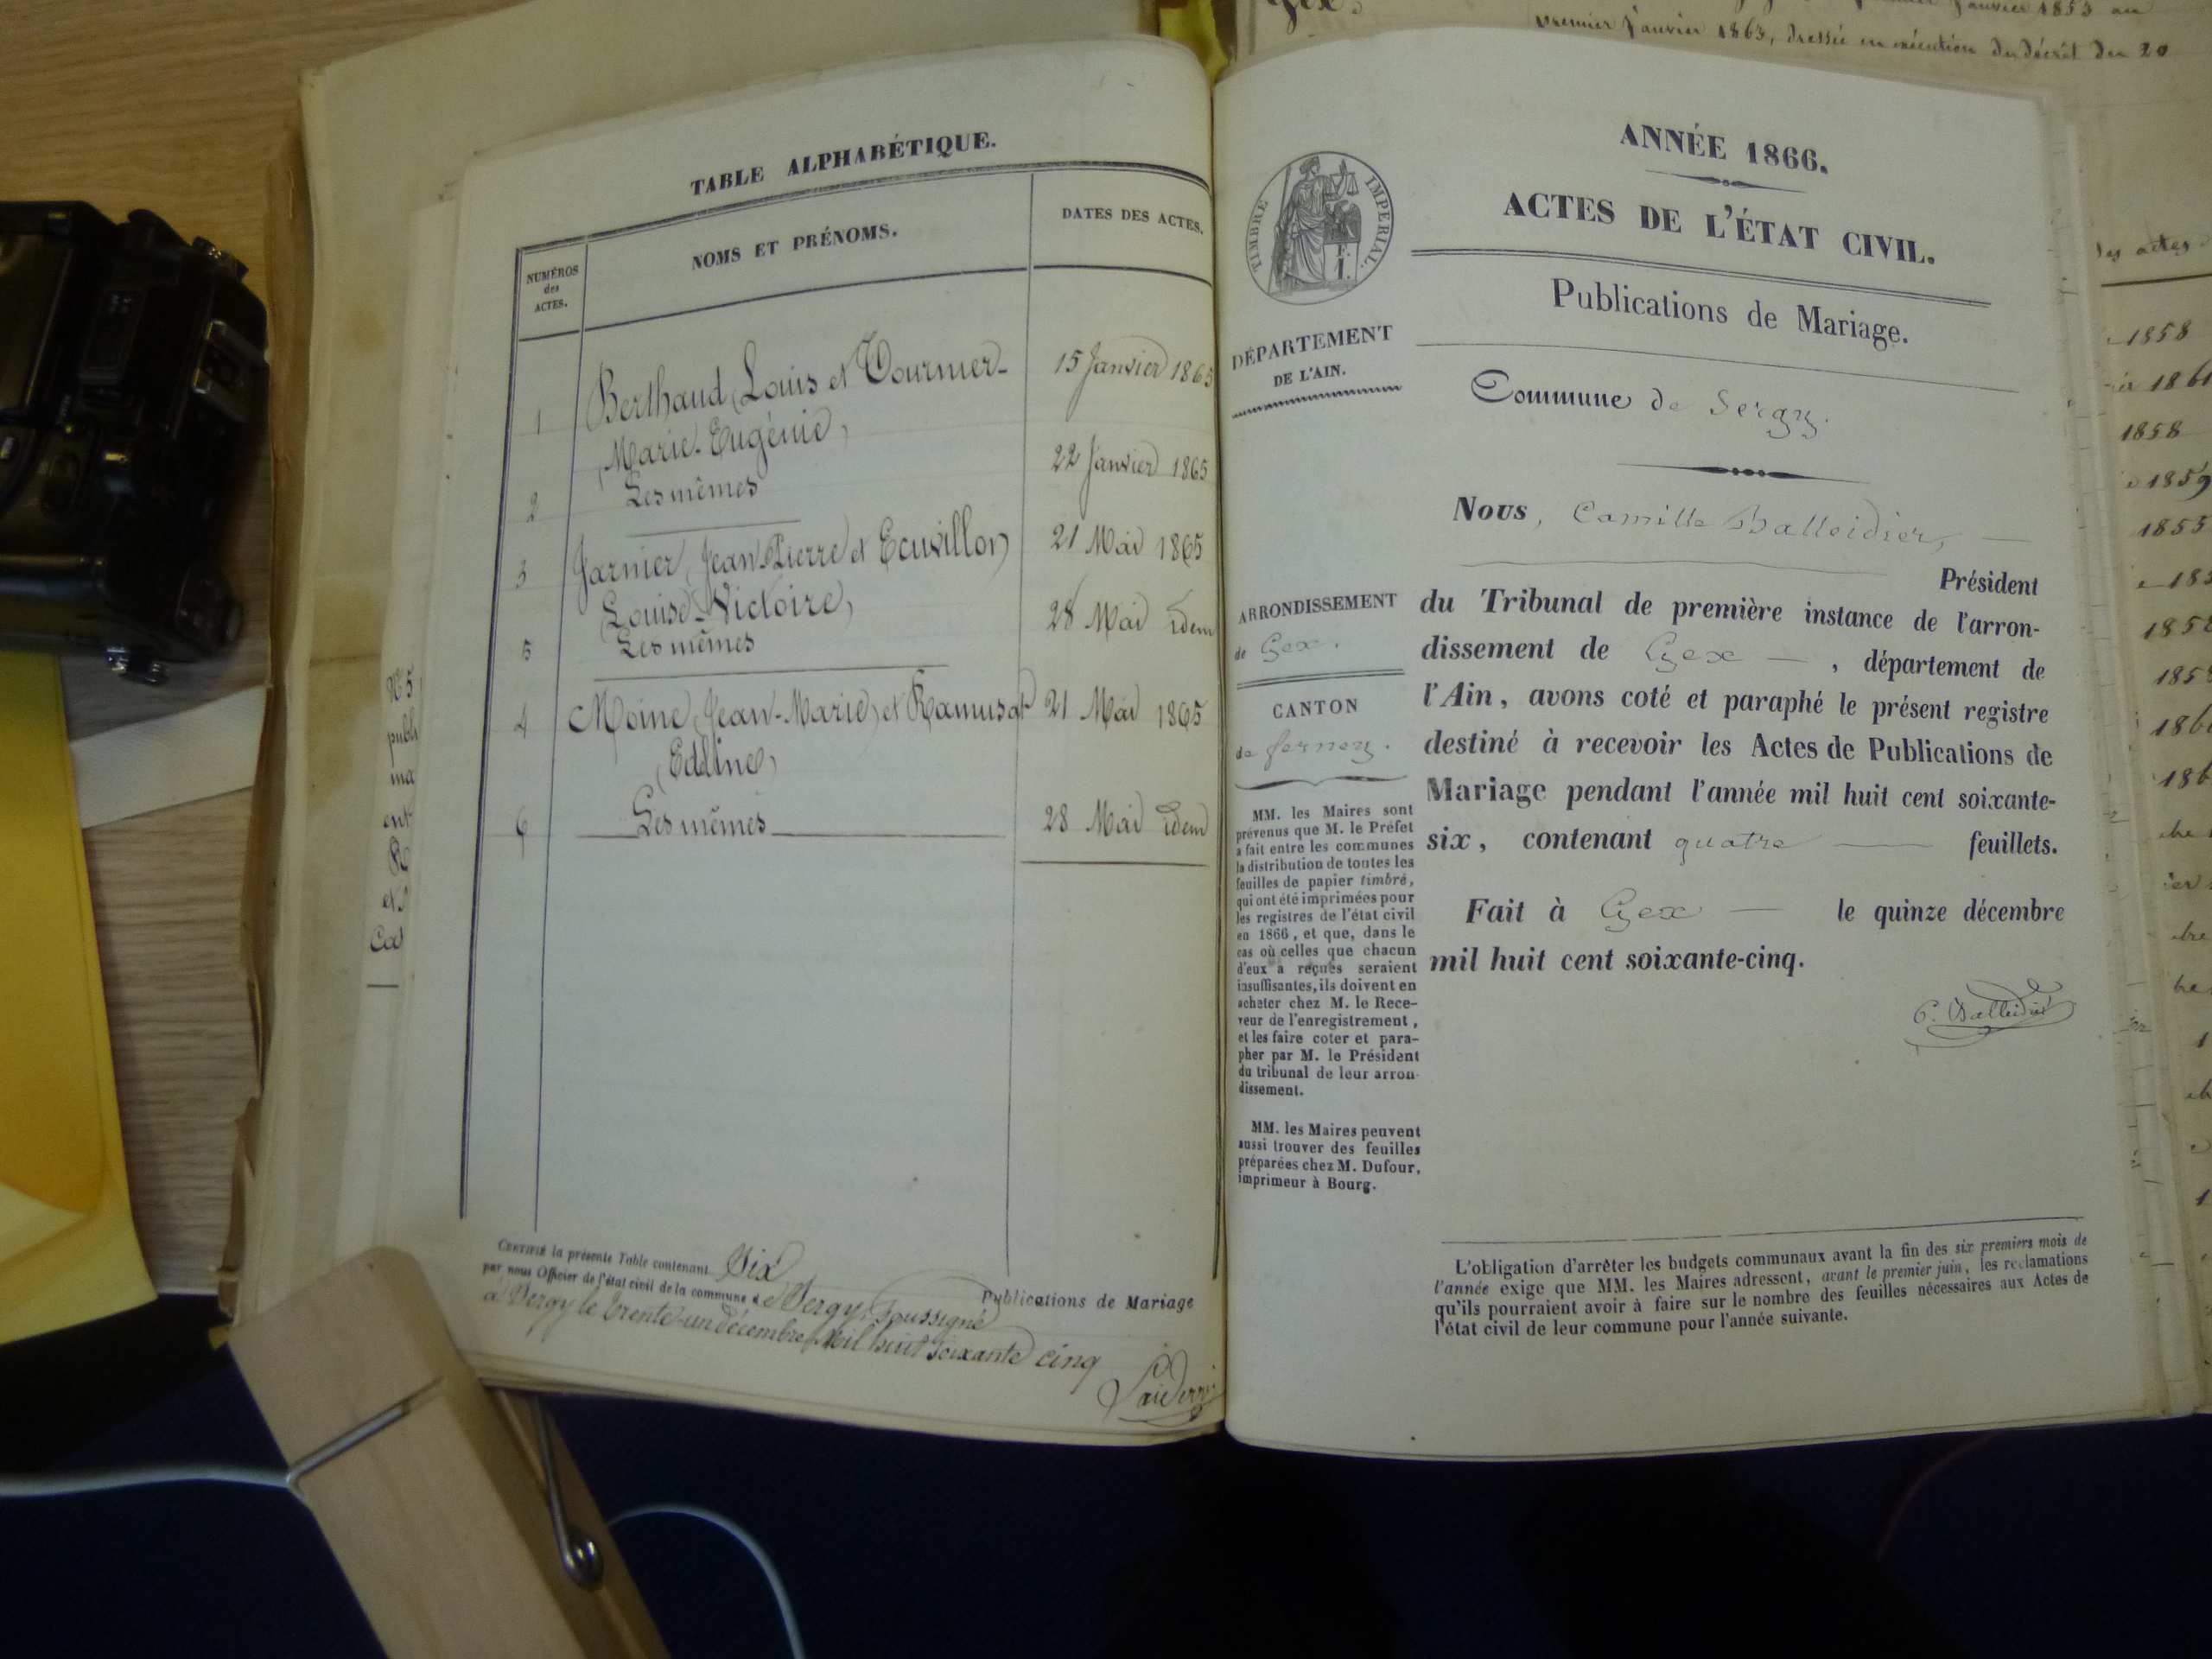 TABLE ALPHABÉTIQUE.
NUMÉROS
des
ACTES.
NOMS ET PRÉNOMS.
DATES DES ACTES.
1 Berthaud, Louis et Tournier- 15 Janvier 1865
Marie-Eugénie,
2 Les mêmes 22 Janvier 1865
3 Garnier, Jean Pierre et Ecuvillon 21 Mai 1865
Louise-Victoire,
5 Les mêmes 28 Mai idem
4 Moine, Jean-Marie, et Ramusat 21 Mai 1865
Edeline,
6 Les mêmes 28 Mai idem
CERTIFIÉ la présente Table contenant Six
Publications de Mariage
par nous Officier de l'état civil de la commune de Sergy, soussigné
à Sergy le trente-un décembre, Mil huit soixante cinq
N° 5
publi
ma
ent
et
ANNÉE 1866.
ACTES DE L'ÉTAT CIVIL.
Publications de Mariage.
TIMBRE IMPÉRIAL.
DÉPARTEMENT
DE L'AIN.
Commune de Sergy.
Nous, Camille Balleidier,
Président
du Tribunal de première instance de l'arron-
dissement de Gex, département de
l'Ain, avons coté et paraphé le présent registre
destiné à recevoir les Actes de Publications de
Mariage pendant l'année mil huit cent soixante-
six, contenant quatre feuillets.
Fait à Gex le quinze décembre
mil huit cent soixante-cinq.
C. Balleidier
ARRONDISSEMENT
de Gex.
CANTON
de ferney.
MM. les Maires sont
prévenus que M. le Préfet
a fait entre les communes
la distribution de toutes les
feuilles de papier timbré,
qui ont été imprimées pour
les registres de l'état civil
en 1866, et que, dans le
cas où celles que chacun
d'eux a reçues seraient
insuffisantes, ils doivent en
acheter chez M. le Rece-
veur de l'enregistrement,
et les faire coter et para-
pher par M. le Président
du tribunal de leur arron-
dissement.
MM. les Maires peuvent
aussi trouver des feuilles
préparées chez M. Dufour,
imprimeur à Bourg.
L'obligation d'arrêter les budgets communaux avant la fin des six premiers mois de
l'année exige que MM. les Maires adressent, avant le premier juin, les réclamations
qu'ils pourraient avoir à faire sur le nombre des feuilles nécessaires aux Actes de
l'état civil de leur commune pour l'année suivante.
Gex.
Janvier 1853 au
premier Janvier 1863, dressée en exécution du décret du 20
des actes
1858
1861
1858
1859
1853